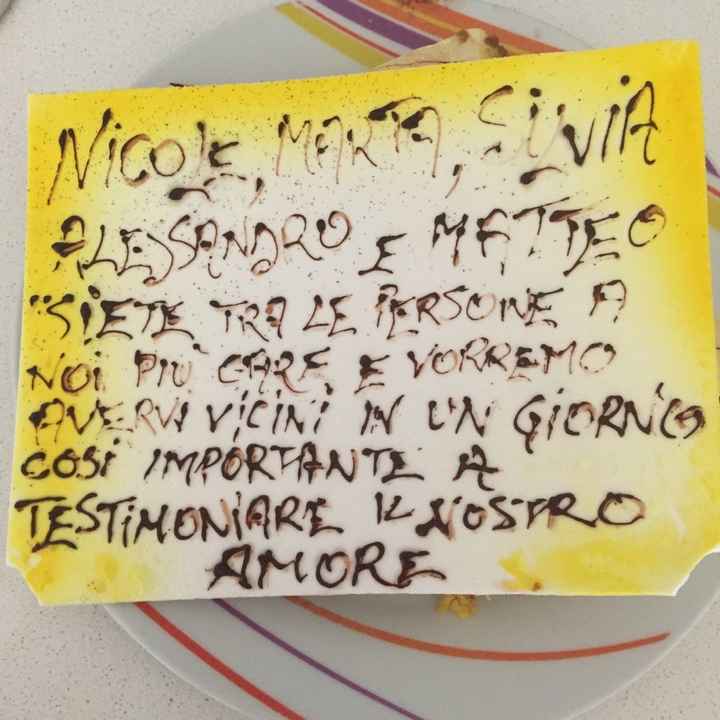 NICOLE, MARTA, SILVIA
ALESSANDRO E MATTEO
"SIETE TRA LE PERSONE A
NOI PIÙ CARE E VORREMO
AVERVI VICINI IN UN GIORNO
COSÌ IMPORTANTE A
TESTIMONIARE IL NOSTRO
AMORE